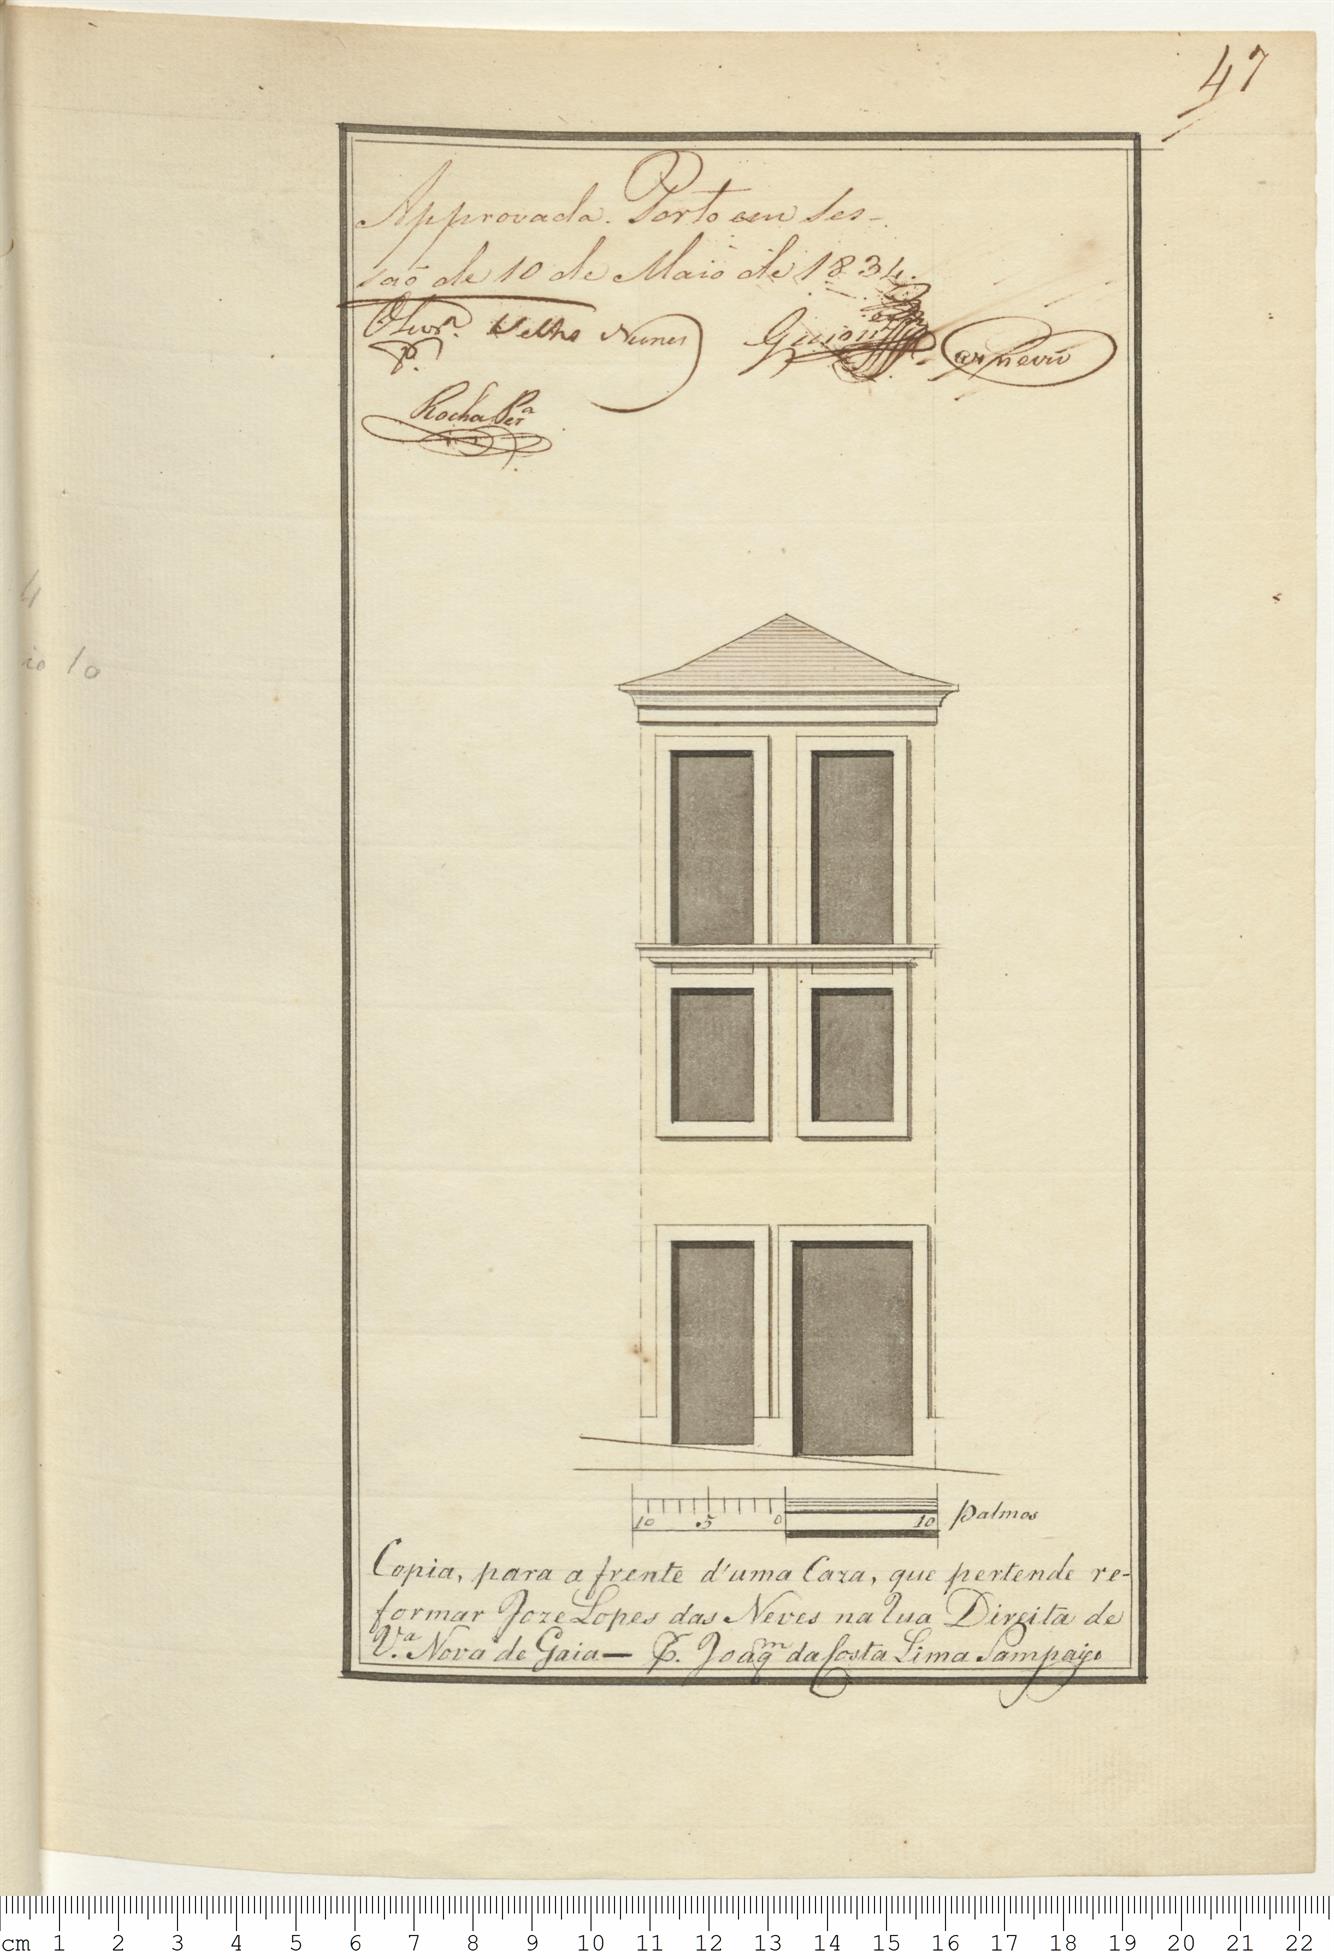 47
Approvada. Porto em Ses-
saõ de 10 de Maio de 1834.
Olivrª. Velho Nunes Guion
P.
Rocha Perª
4
io 10
10 .5 0 10 palmos
Copia, para a frente d'uma Caza, que pertende re-
formar Joze Lopes das Neves na Rua Direita de
Vª. Nova de Gaia— P. Joaqm da Costa Lima Sampayo
cm 1 2 3 4 5 6 7 8 9 10 11 12 13 14 15 16 17 18 19 20 21 22